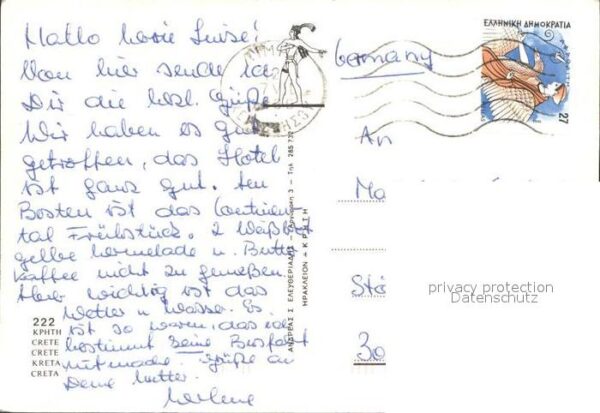 Hallo Marie Luise!
Von hier sende ich
Dir die herzl. Grüße
Wir haben es gut
getroffen, das Hotel
ist ganz gut. Am
Besten ist das Continen
tal Frühstück. 2 Weißbr
gelbe Marmelade u. Butter
Kaffee nicht zu genießen.
Aber wichtig ist das
Wetter u. Wasser. Es
ist so warm, das
bestimmt Seine
mitmache. Grüße an
Deine Mutter.
Marlene
222
ΚΡΗΤΗ
CRETE
CRETE
KRETA
CRETA
ΑΝΔΡΕΑΣ Σ. ΕΛΕΥΘΕΡΙΑΔΗΣ
3 - Τηλ. 285 732
ΗΡΑΚΛΕΙΟΝ ΚΡΗΤΗ
Germany
ΕΛΛΗΝΙΚΗ ΔΗΜΟΚΡΑΤΙΑ
27
An
Ma
Stö
30
privacy protection
Datenschutz